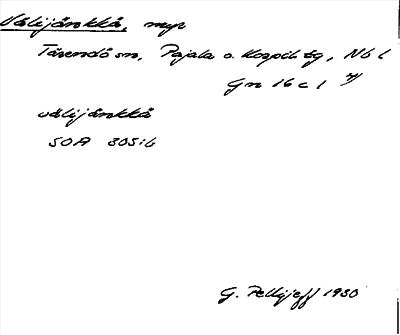 Välijänkkä, myr
Tärendö sn, Pajala o. Korpil. tg, Nb l
Gn 16 c 1
välijänkkä
SOA 305:6
G. Pellijeff 1950